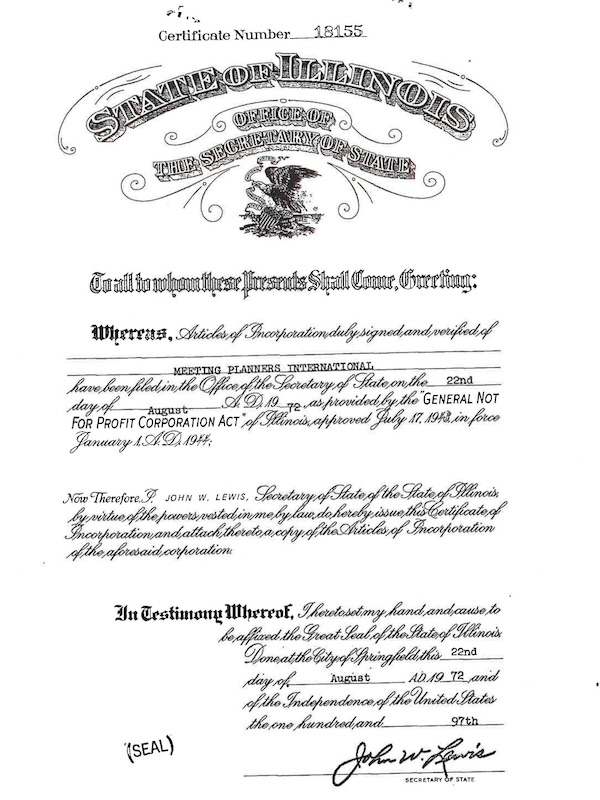 Certificate Number 18155
STATE OF ILLINOIS
OFFICE OF
THE SECRETARY OF STATE
To all to whom these Presents Shall Come, Greeting:
Whereas, Articles of Incorporation duly signed and verified of
MEETING PLANNERS INTERNATIONAL
have been filed in the Office of the Secretary of State on the 22nd
day of August A.D. 19 72, as provided by the "GENERAL NOT
FOR PROFIT CORPORATION ACT" of Illinois, approved July 17, 1943, in force
January 1, A.D. 1944;
Now Therefore, I, JOHN W. LEWIS, Secretary of State of the State of Illinois,
by virtue of the powers vested in me by law, do hereby issue this Certificate of
Incorporation and attach thereto a copy of the Articles of Incorporation
of the aforesaid corporation.
In Testimony Whereof, I hereto set my hand and cause to
be affixed the Great Seal of the State of Illinois.
Done at the City of Springfield this 22nd
day of August A.D. 19 72 and
of the Independence of the United States
the one hundred and 97th
(SEAL)
John W. Lewis
SECRETARY OF STATE